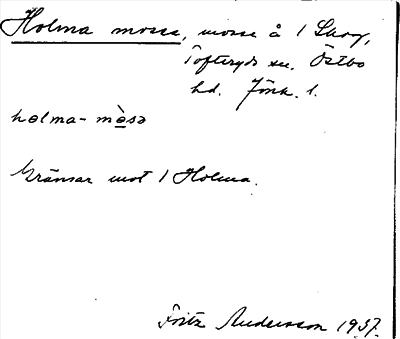 Holma mosse, mosse å 1 Skog,
Tofteryds sn. Östbo
hd. Jönk. l.
holma- mòsə
Gränsar mot 1 Holma.
Fritz Andersson 1937.